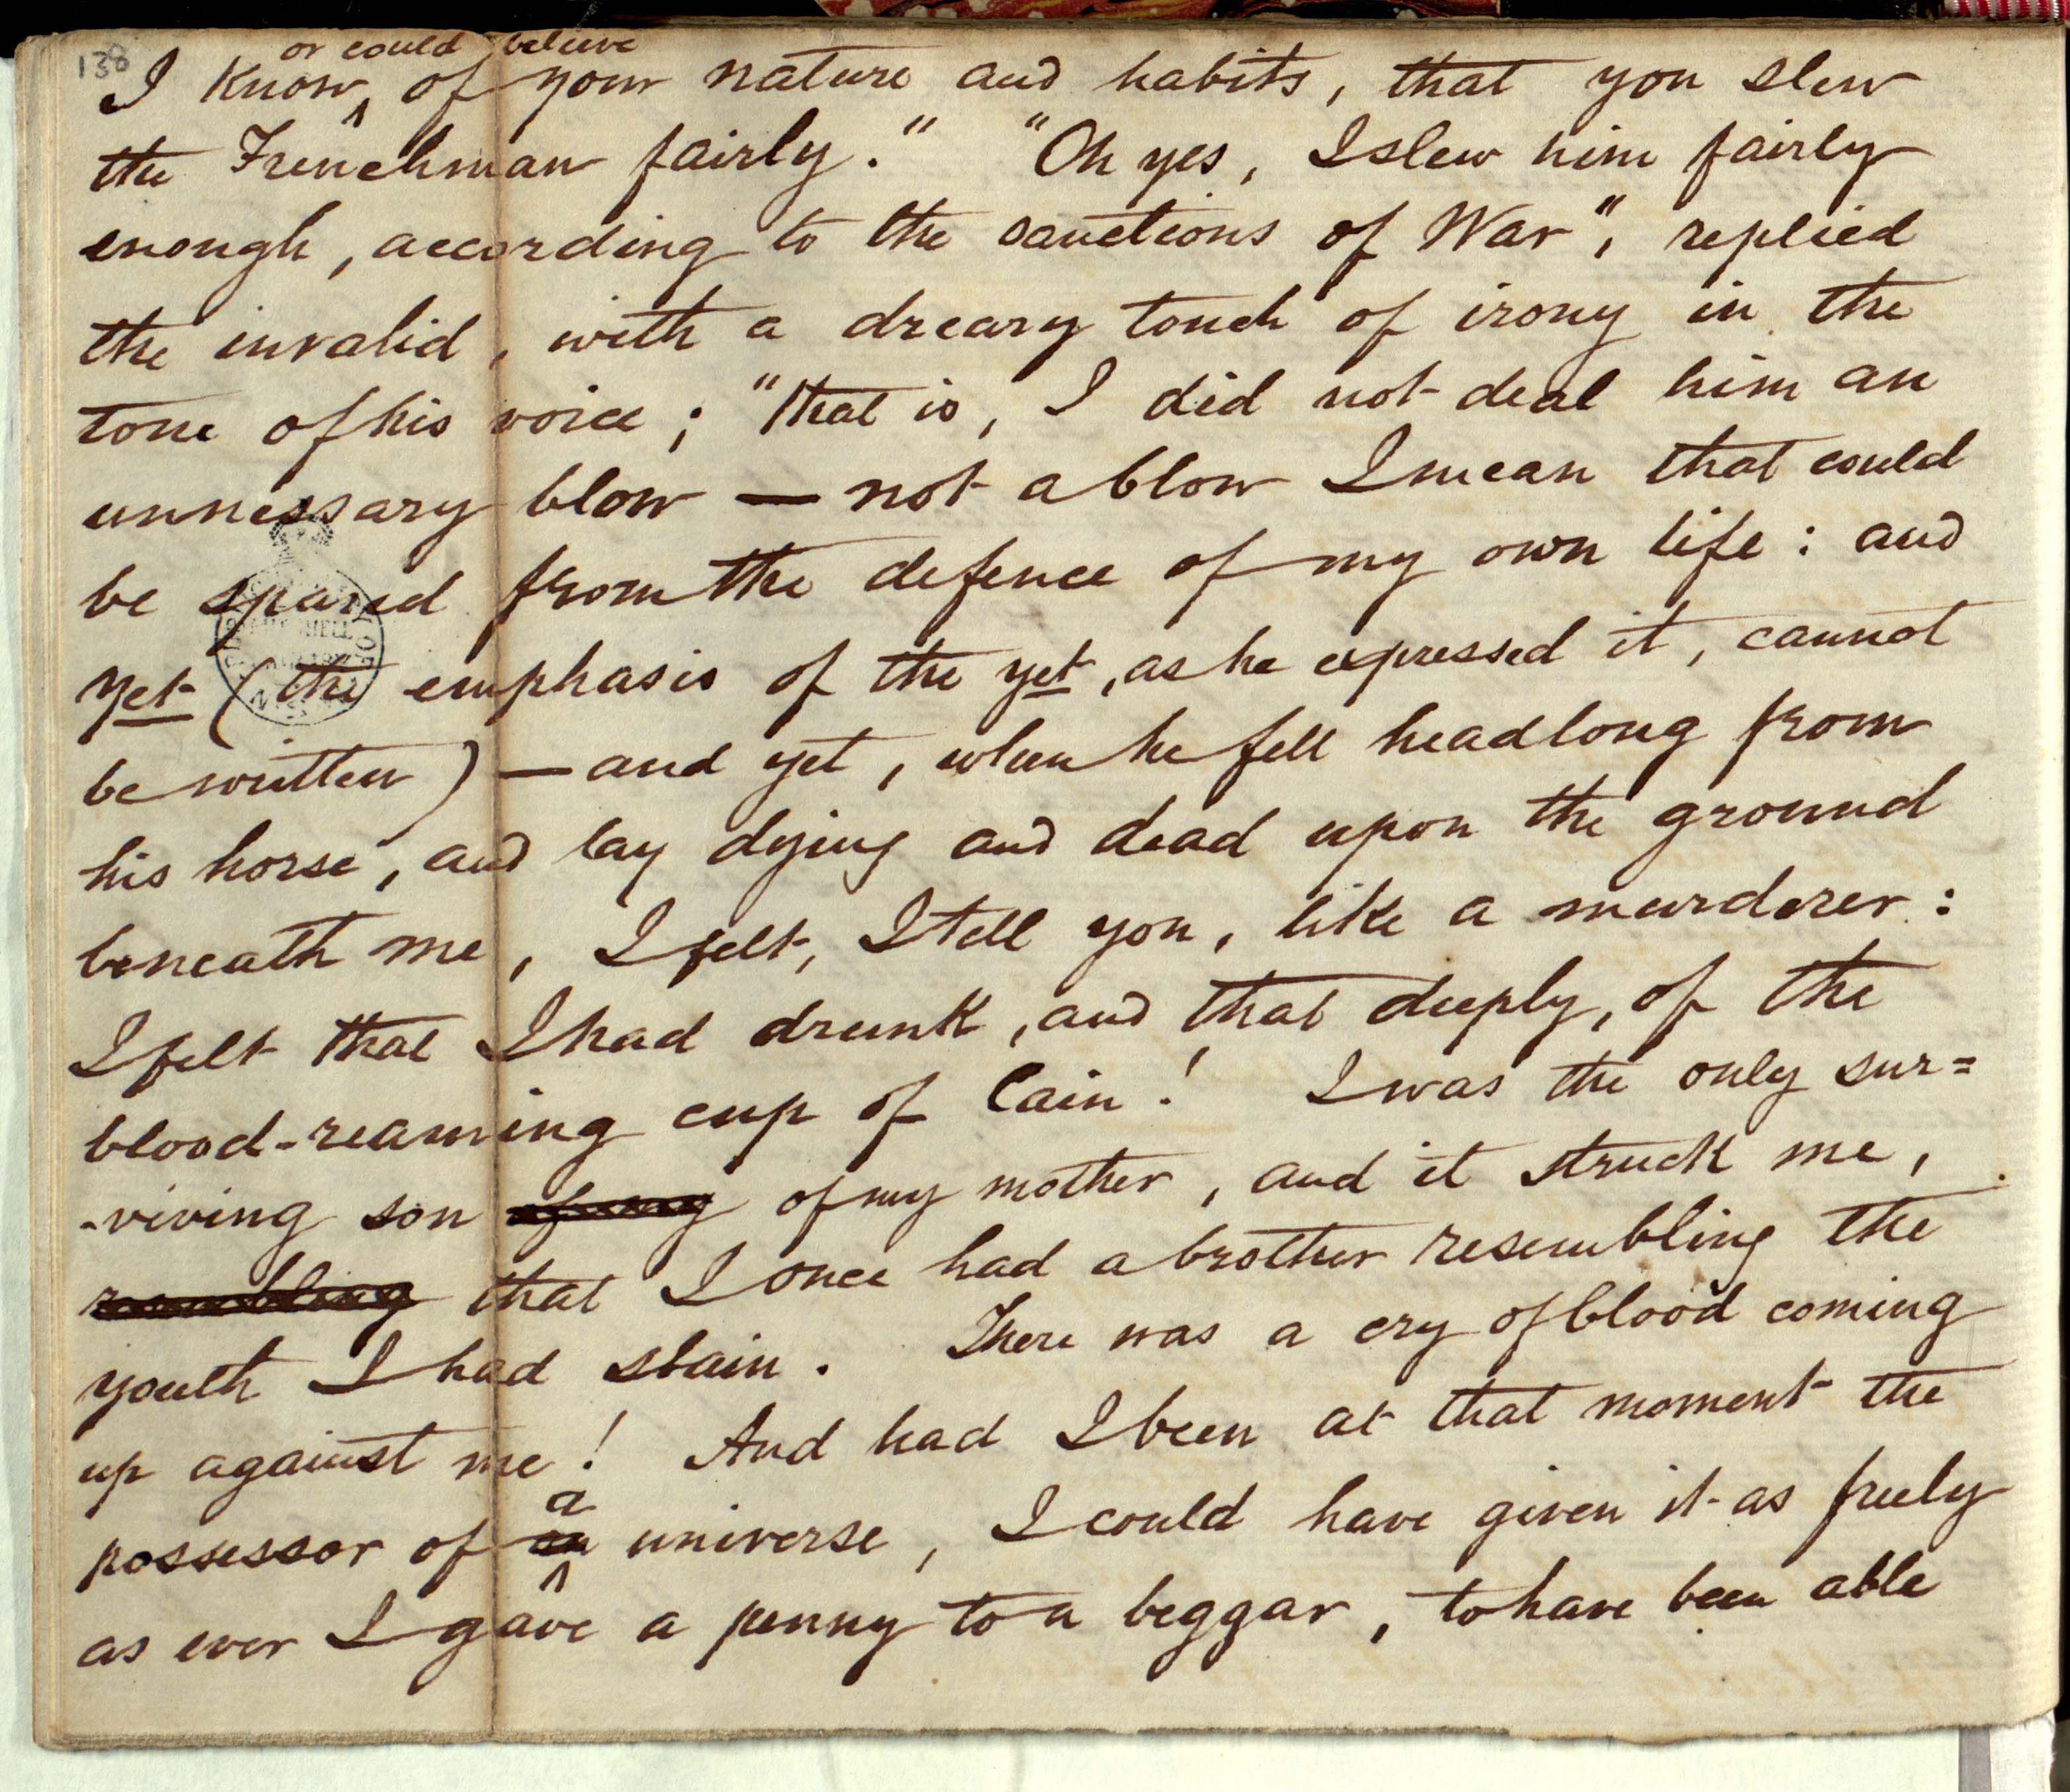 138
or could believe
I know, of your nature and habits, that you slew
the Frenchman fairly." "Oh yes, I slew him fairly
enough, according to the sanctions of War", replied
the invalid, with a dreary touch of irony in the
tone of his voice; "that is, I did not deal him an
unnessary blow — not a blow I mean that could
be spared from the defence of my own life: and
yet (the emphasis of the yet, as he expressed it, cannot
be written) — and yet, when he fell headlong from
his horse, and lay dying and dead upon the ground
beneath me, I felt, I tell you, like a murderer:
I felt that I had drunk, and that deeply, of the
blood-reaming cup of Cain! I was the only sur=
-viving son of my mother, and it struck me,
resembling that I once had a brother resembling the
youth I had slain. There was a cry of blood coming
up against me! And had I been at that moment the
a
possessor of an universe, I could have given it as freely
as ever I gave a penny to a beggar, to have been able